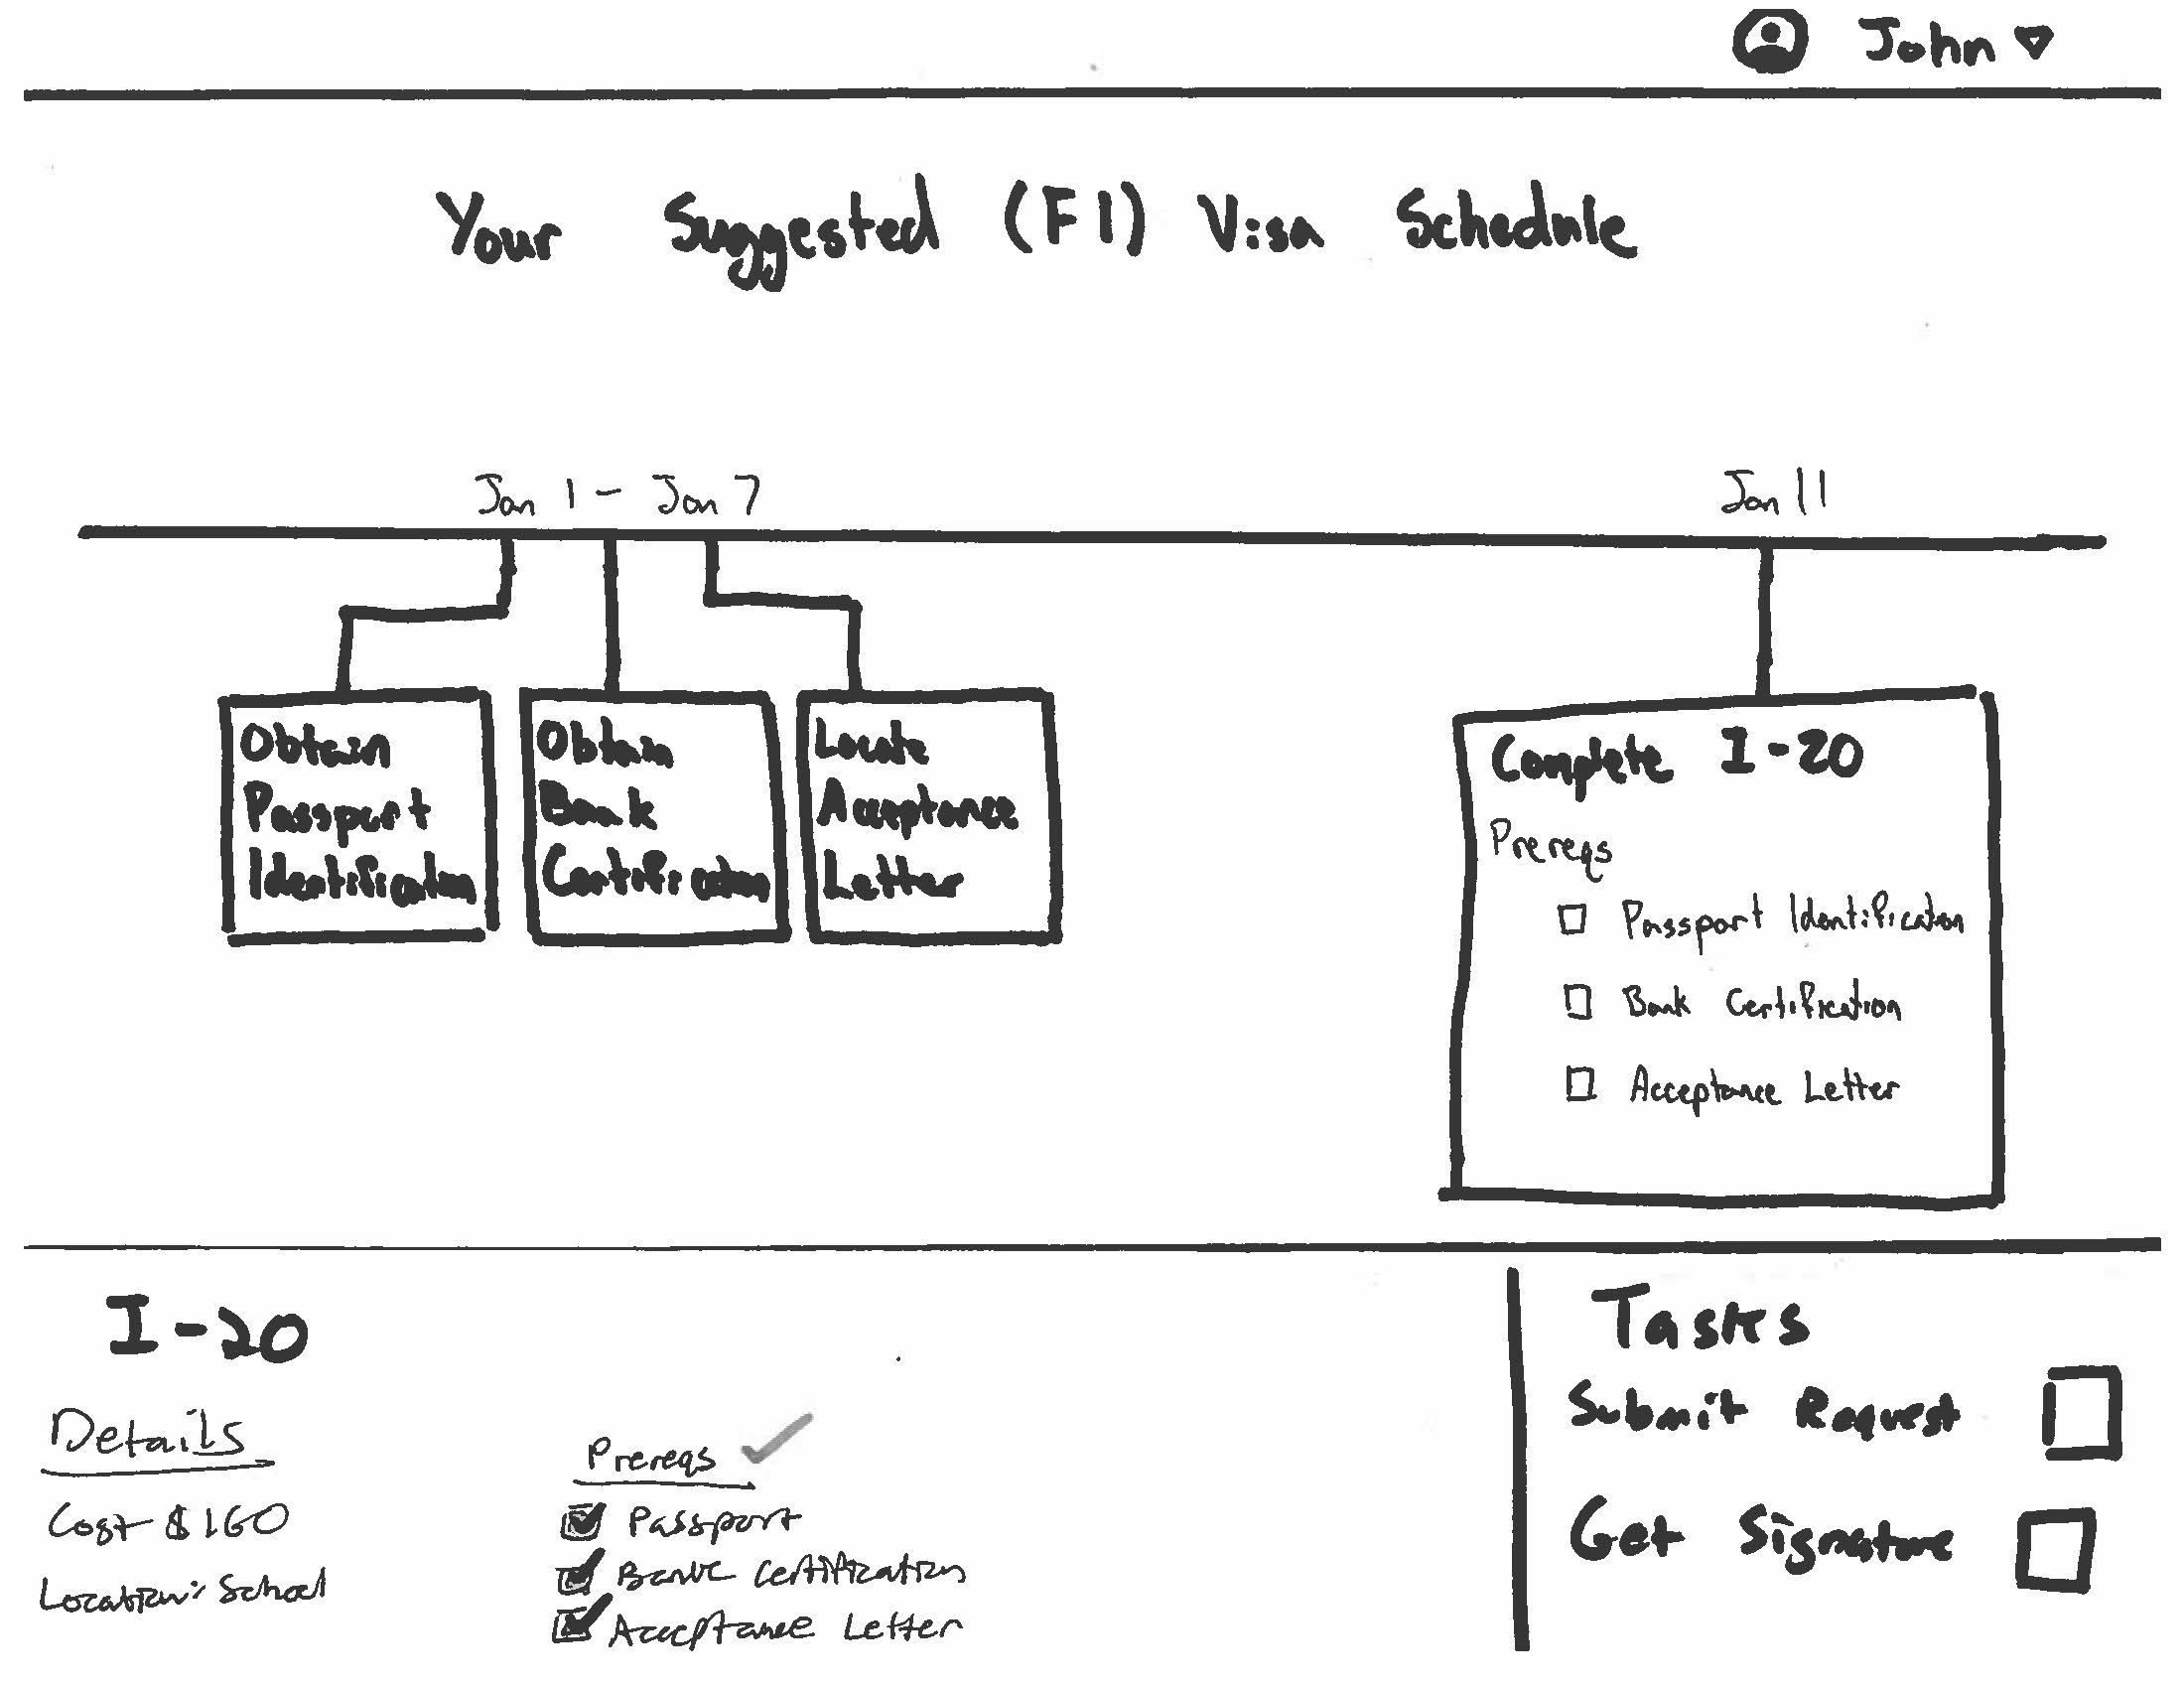 John
Your Suggested (F1) Visa Schedule
Jan 1 - Jan 7
Jan 11
Obtain
Passport
Identification
Obtain
Bank
Certification
Locate
Acceptance
Letter
Complete I-20
Prereqs
Passport Identification
Bank Certification
Acceptance Letter
I-20
Details
Cost $160
Location: School
Prereqs
Passport
Bank Certification
Acceptance Letter
Tasks
Submit Request
Get Signature